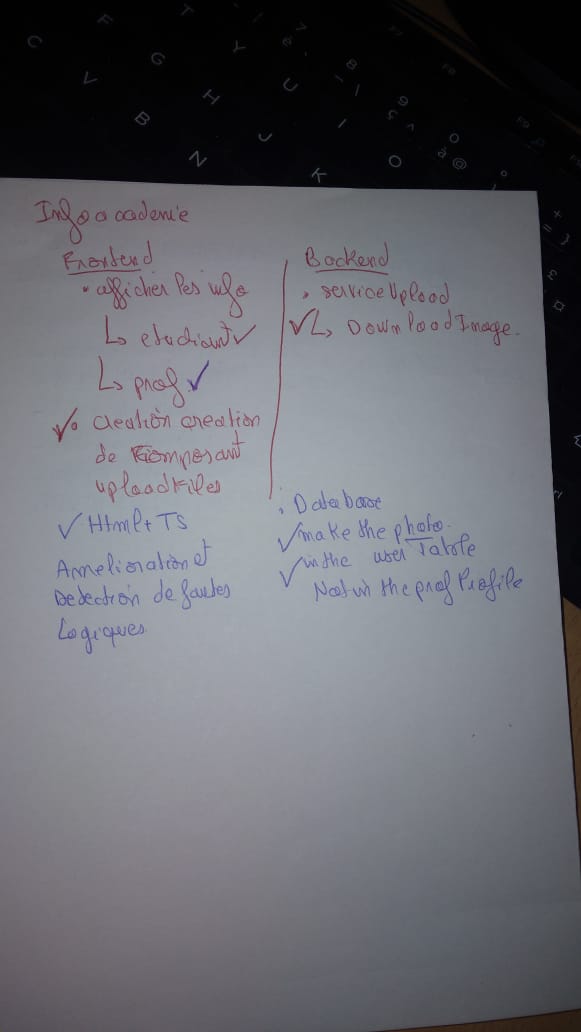 Info academie
Frontend
• afficher les info
↳ etudiant ✓
↳ prof ✓
✓• creation creation
de composant
uploadFiles
✓ Html + TS
Amelioration et
Detection de fautes
Logiques
Backend
• serviceUpload
✓↳ DownloadImage.
: Database
✓ make the photo
✓ in the user Table
Not in the prof Profile
C
F
T
V
G
Y
B
H
U
N
J
I
K
O